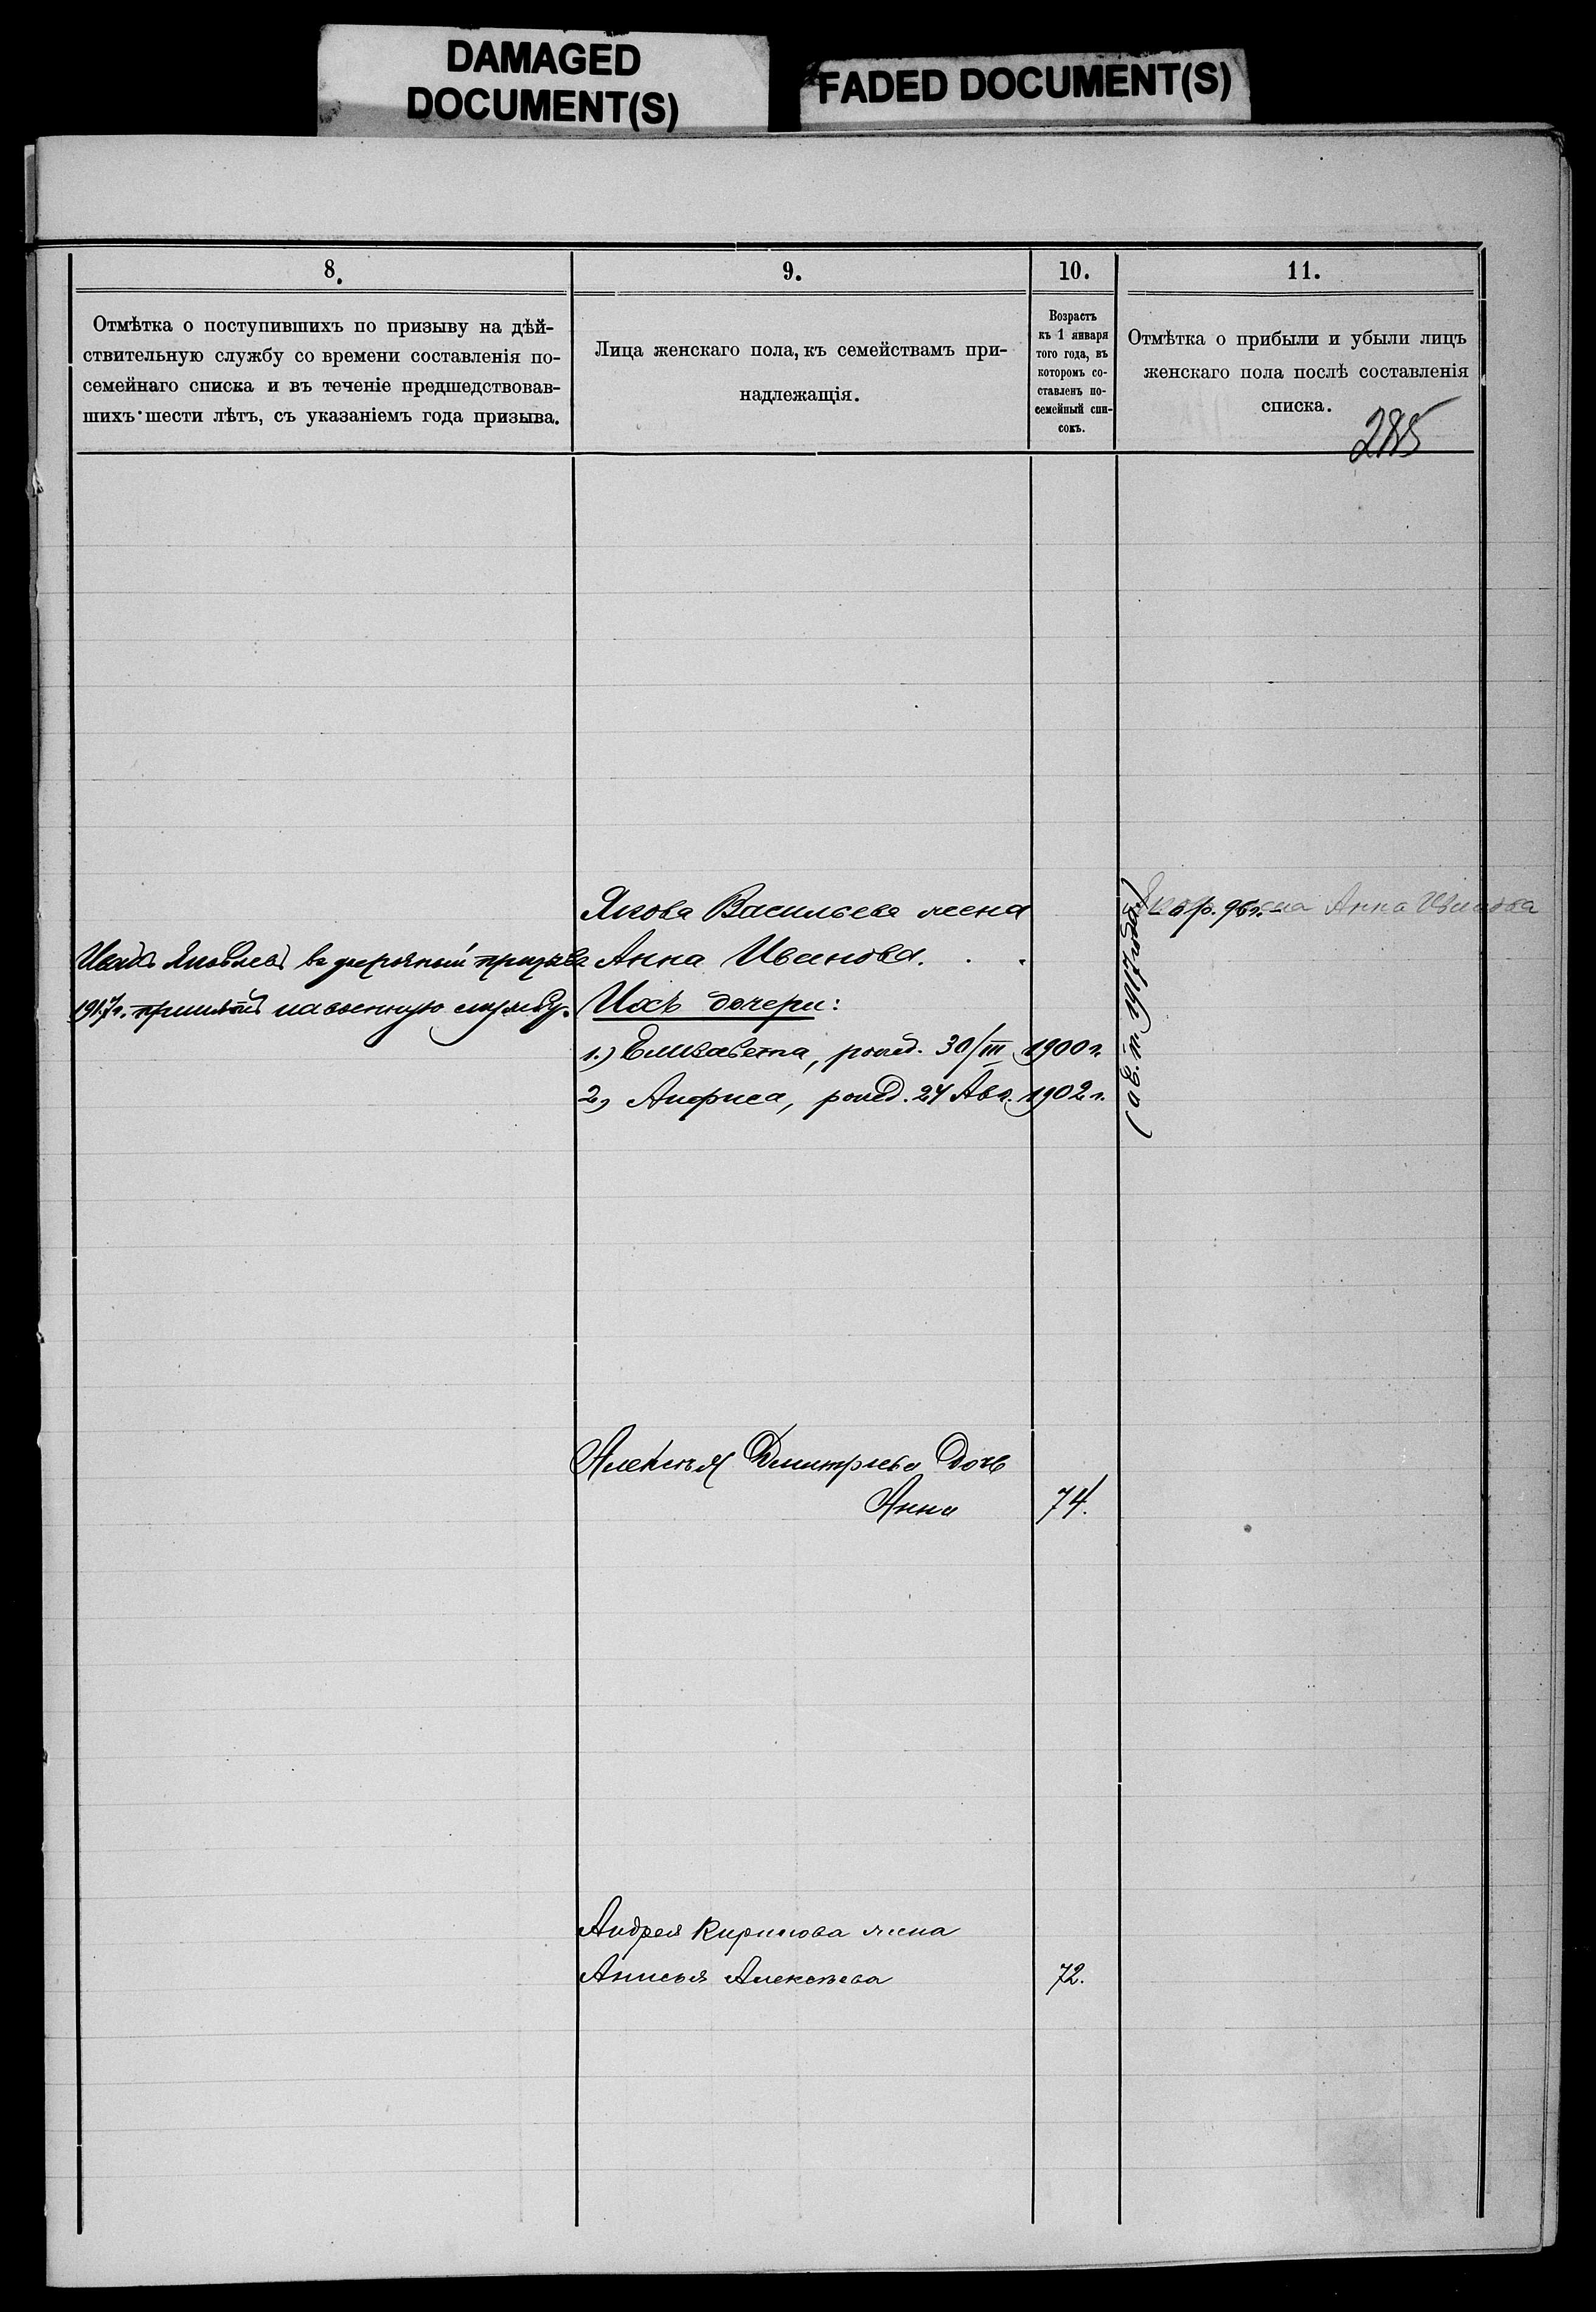 DAMAGED
DOCUMENT(S)
FADED DOCUMENT(S)
8.
Отмѣтка о поступившихъ по призыву на дѣй-
ствительную службу со времени составленія по-
семейнаго списка и въ теченіе предшедствовав-
шихъ шести лѣтъ, съ указаніемъ года призыва.
9.
Лица женскаго пола, къ семействамъ при-
надлежащія.
10.
Возрастъ
къ 1 января
того года, въ
которомъ со-
ставленъ по-
семейный спи-
сокъ.
11.
Отмѣтка о прибыли и убыли лицъ
женскаго пола послѣ составленія
списка.
285
Иванъ Яковлевъ въ призывъ
1917г. принятъ на военную службу.
Якова Васильева жена
Анна Иванова.
Ихъ дочери:
1.) Елизавета, рожд. 30/III 1900 г.
2) Анфиса, рожд. 24 Авг. 1902 г.
1917 года)
Анна Иванова
Алексѣя Дмитріева дочь
Анна 74.
Андрея Кирилова жена
Анисья Алексѣева 72.